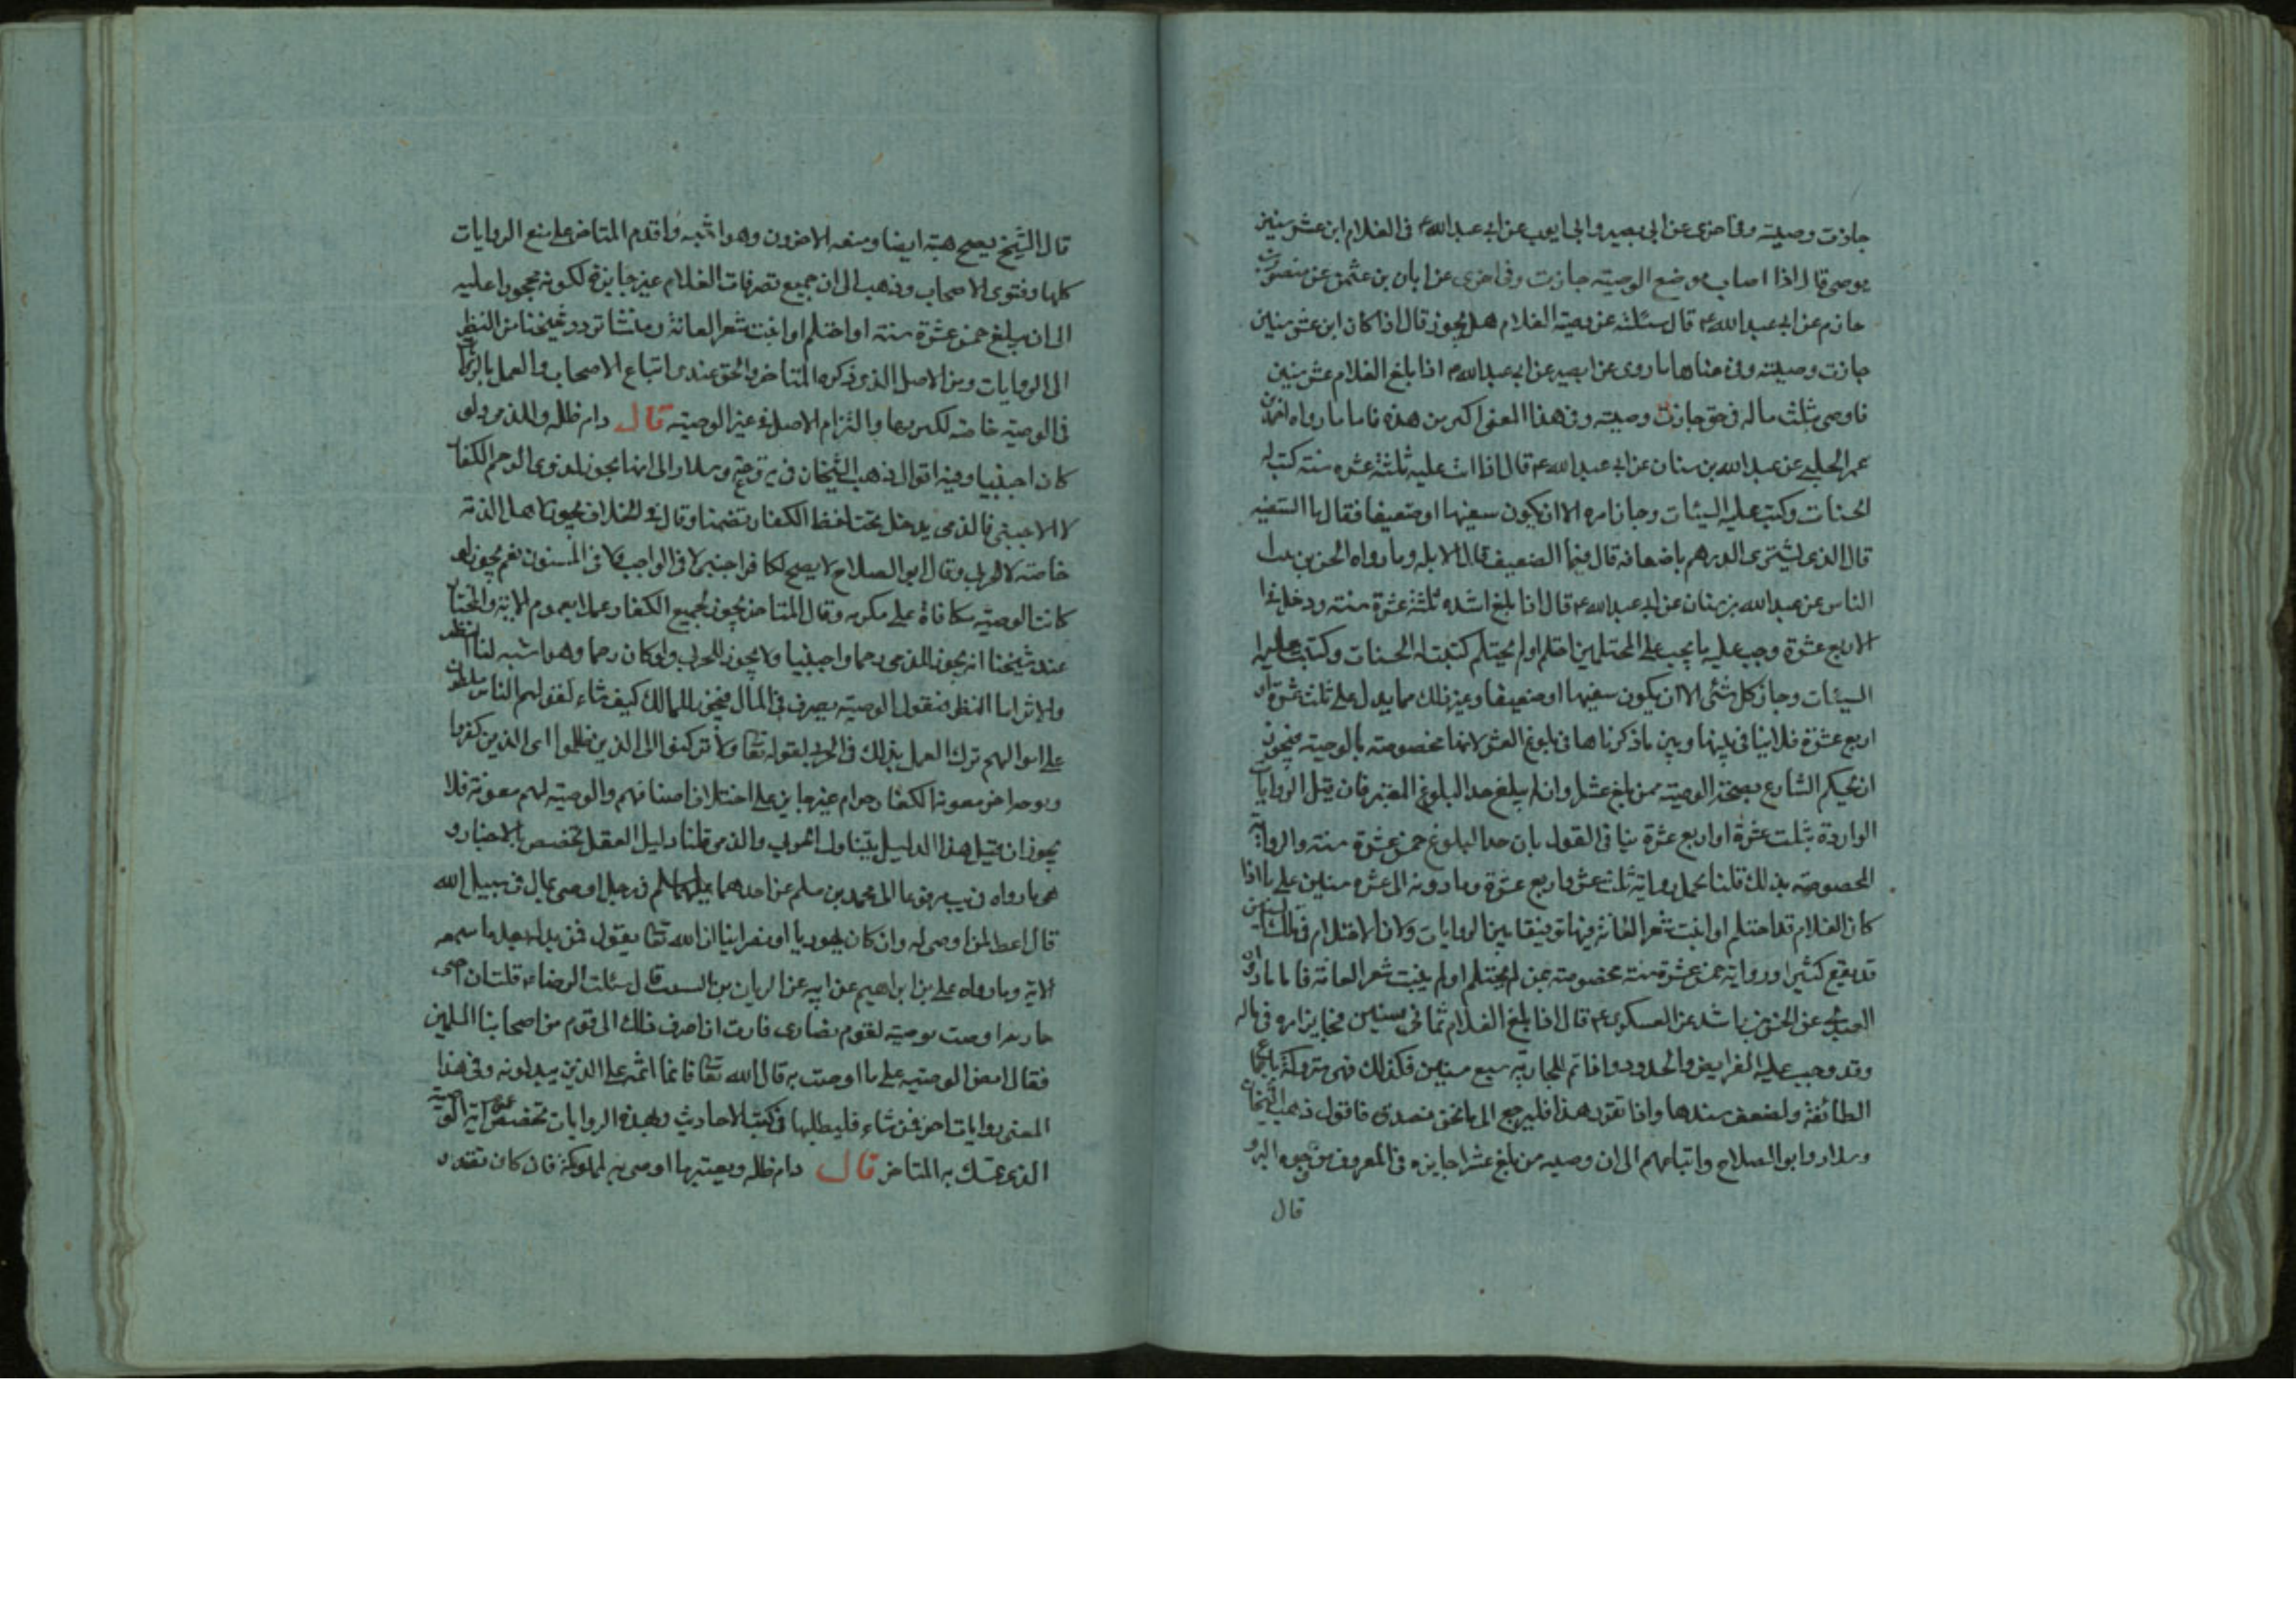 جازت وصيته وفي اخرى عن ابي بصير وابي ايوب عن ابي عبد الله ع في الغلام ابن عشر سنين
يوصى قال اذا اصاب موضع الوصيته جازت وفي اخرى عن ابان بن عثمن عن منصور بن
حازم عن ابي عبد الله ع قال سئلته عن وصية الغلام هل يجوز قال اذا كان ابن عشر سنين
جازت وصيته وفي معناها ما روى عن ابي بصير عن ابي عبد الله ع اذا بلغ الغلام عشر سنين
فاوصى بثلث ماله في حق جازت وصيته وفي هذا المعنى اكثر من هذه فاما ما رواه
عمر الحلبي عن عبد الله بن سنان عن ابي عبد الله ع قال اذا اتت عليه ثلثة عشره سنته كتب له
الحسنات وكتب عليه السيئات وجاز امره الا ان يكون سفيها او ضعيفا فقال ما السفيه
قال الذي يشترى الدرهم باضعافه قال فما الضعيف قال الابله وما رواه الحسن بن بنت
الياس عن عبد الله بن سنان عن ابي عبد الله ع قال اذا بلغ اشده ثلثة عشرة سنته ودخل في
الاربع عشرة وجب عليه ما يجب على المحتلمين احتلم او لم يحتلم كتبت له الحسنات وكتبت عليه
السيئات وجاز كل شئ الا ان يكون سفيها او ضعيفا وغير ذلك مما يدل على ثلث عشرة او
اربع عشرة فلا ينافي بينها وبين ما ذكرناها في بلوغ العشر لانها مخصوصته بالوصيته فيجوز
ان يحكم الشارع بصحة الوصيته ممن بلغ عشرا وان لم يبلغ حد البلوغ المعتبر فان قيل الروايات
الواردة بثلث عشرة او اربع عشرة ينافي القول بان حد البلوغ خمس عشرة سنته والرواية
المخصوصه بذلك قلنا نحمل رواية ثلث عشر واربع عشرة وما دونه الى عشره سنين على ما اذا
كان الغلام قد احتلم او انبت شعر العانة فيها توفيقا بين الروايات ولان الاحتلام في تلك السنين
قد يقع كثيرا ورواية خمس عشرة سنته مخصوصته بمن لم يحتلم او لم ينبت شعر العانه فاما ما رواه
العبيدي عن الحسن بن راشد عن العسكري ع قال اذا بلغ الغلام ثماني سنين فجايز امره في ماله
وقد وجب عليه الفرايض والحدود واذا تم للجارية سبع سنين فكذلك فهى متروكة باجماع
الطائفة ولضعف سندها واذا تقرر هذا فليرجع الى ما نحن بصدده فاقول ذهب الشيخان
وسلار وابو الصلاح واتباعهم الى ان وصيه من بلغ عشرا جايزه في المعروف من وجوه البر و
قال
قال الشيخ يصح هبته ايضا ومنعه الاخرون وهو اشبه واقدم المتاخر على منع الروايات
كلها وفتوى الاصحاب وذهب الى ان جميع تصرفات الغلام غير جايزة لكونه محجورا عليه
الى ان يبلغ خمس عشرة سنته او احتلم او انبت شعر العانة ومنشا تردد شيخنا من النظر
الى الروايات ومن الاصل الذي ذكره المتاخر والحق عندى اتباع الاصحاب والعمل بالروايات
في الوصيه خاصه لكثرتها والتزام الاصل في غير الوصيته قال دام ظله وللذمى ولو
كان اجنبيا وفيه اقوال ذهب الشيخان في ية وسلار الى انها يجوز لذوى الرحم الكفار
لا الاجنبي فالذمى يدخل تحت لفظ الكفار تضمنا وقال في الخلاف يجوز لاهل الذمة
خاصته لا الحربي وقال ابو الصلاح لا يصح لكافر اجنبي لا في الواجب ولا في المسنون نعم يجوز لو
كانت الوصيته مكافاة على مكرمه وقال المتاخر يجوز لجميع الكفار عملا بعموم الاية والمختار
عند شيخنا انه يجوز للذمى رحما واجنبيا ولا يجوز للحربي ولو كان رحما وهو اشبه لنا النظر
والاثر اما النظر فنقول الوصيته تصرف في المال فيجوز للمالك كيف شاء لقولهم الناس مسلطون
على اموالهم ترك العمل بذلك في الحربي لقوله تعا ولا تركنوا الى الذين ظلموا اى الذين كفروا
وبوجه اخر معونة الكفار حرام غير جايز على اختلاف اصنافهم والوصيته لهم معونة فلا
يجوز ان قيل هذا الدليل يتناول الحربي والذمى قلنا دليل العقل تخصص بالاخبار و
هى ما رواه في يب مرفوعا الى محمد بن مسلم عن احدهما عليهما السلم في رجل اوصى بمال في سبيل الله
قال اعط لمن اوصى له وان كان يهوديا او نصرانيا ان الله تعا يقول فمن بدله بعد ما سمعه
الاية وما رواه على بن ابراهيم عن ابيه عن الريان بن قال سئلت الرضا ع قلت ان اختى
اوصت بوصيه لقوم نصارى فاردت ان اصرف ذلك الى قوم من اصحابنا المسلمين
فقال امض الوصيه على ما اوصت به قال الله تعا فانما اثمه على الذين يبدلونه وفي هذا
المعنى روايات اخر فمن شاء فليطلبها في كتب الاحاديث وبهذه الروايات تخصص عموم اية الوصية
الذي تمسك به المتاخر قال دام ظله ويعتبر ما اوصى به لمملوكه فان كان بقدر